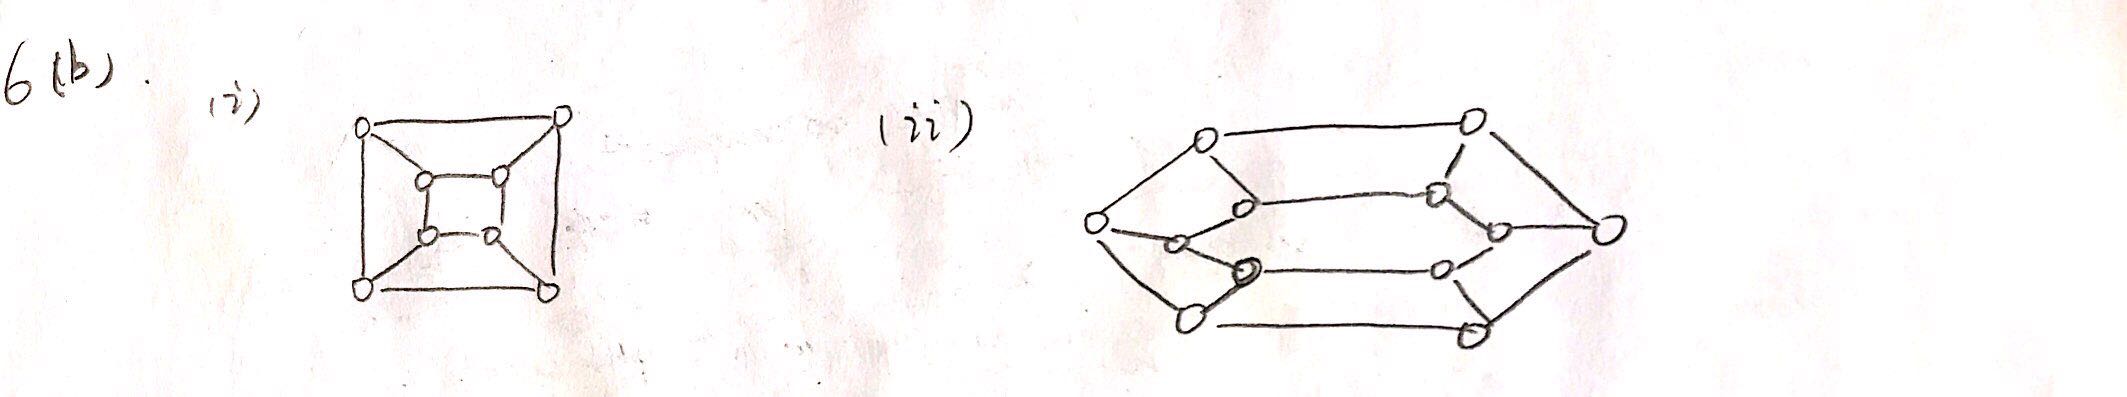 6(b).
(i)
(ii)